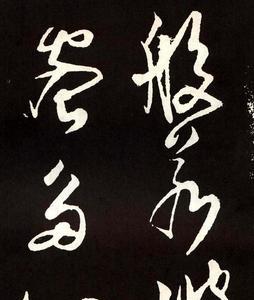 般若波
蜜多